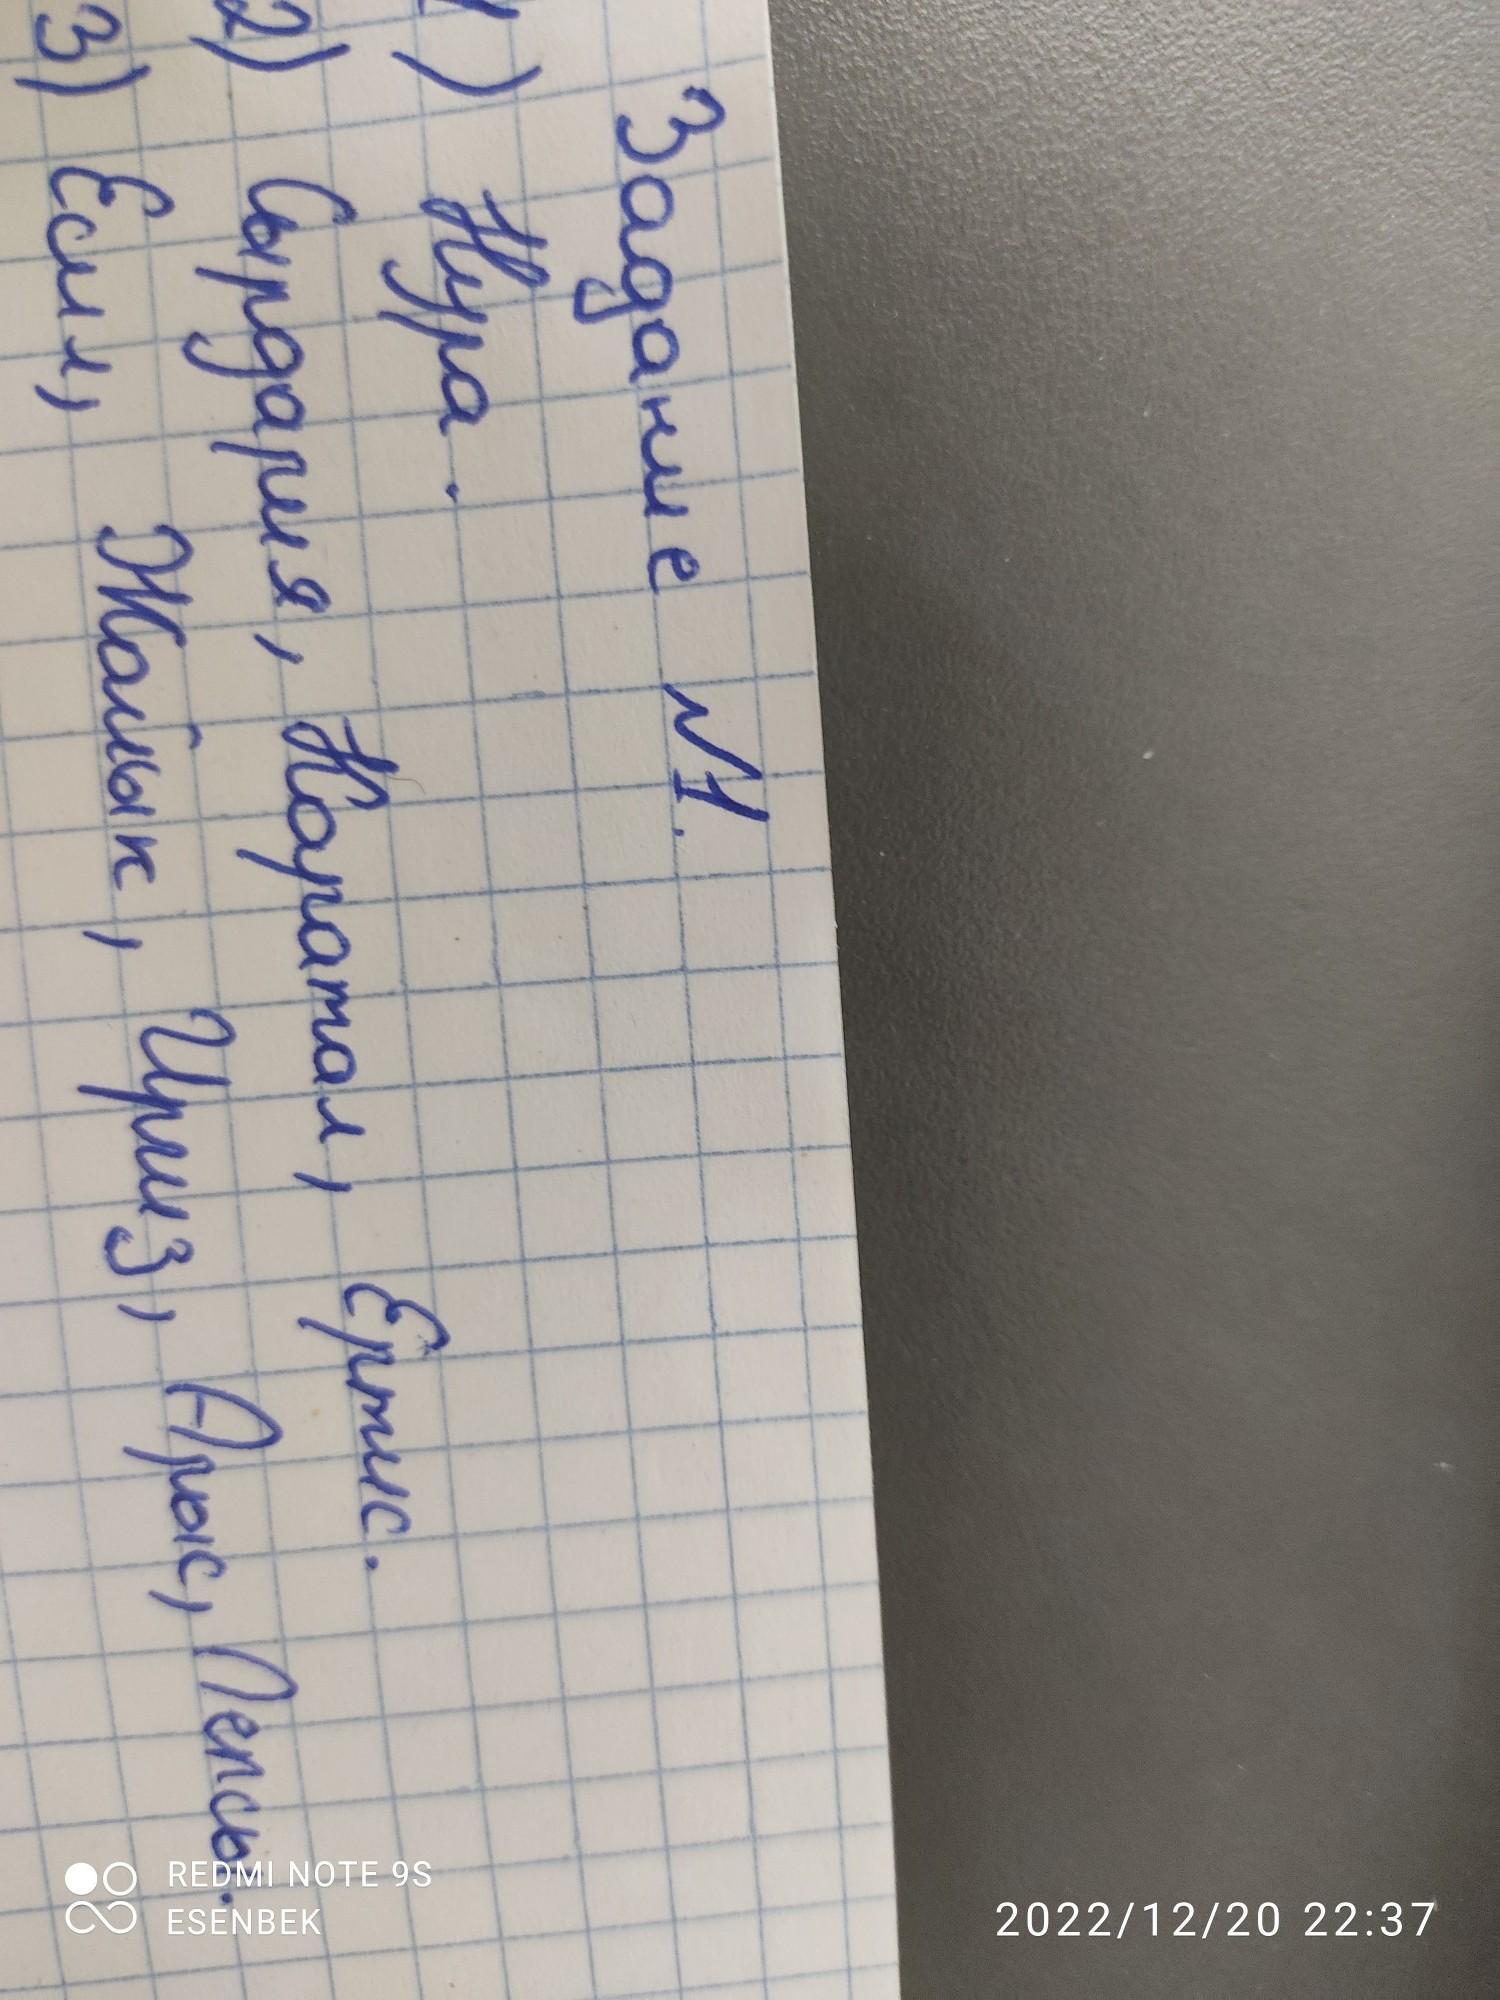 Задание №1.
1) Нура.
2) Сырдария, Каратал, Ертис.
3) Есил, Жайык, Иргиз, Арыс, Лепсы.
REDMI NOTE 9S
ESENBEK
2022/12/20 22:37